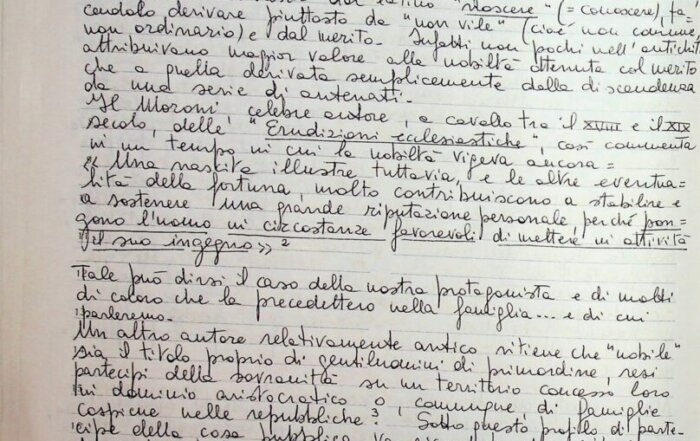 latino "noscere" (= conoscere), fa-
cendolo derivare piuttosto da "non vile" (cioè non comune,
non ordinario) e dal merito. Infatti non pochi nell'antichit
attribuivano maggior valore alla nobiltà ottenuta col merito
che a quella derivata semplicemente dalla discendenza
da una serie di antenati.
Il Moroni celebre autore, a cavallo tra il XVIII e il XIX
secolo, delle "Erudizioni ecclesiastiche", così commenta
in un tempo in cui la nobiltà vigeva ancora =
"Una nascita illustre tuttavia, e le altre eventua=
lità della fortuna, molto contribuiscono a stabilire e
a sostenere una grande riputazione personale, perché pon=
gono l'uomo in circostanze favorevoli di mettere in attività
il suo ingegno» 2
Tale può dirsi il caso della nostra protagonista e di molti
di coloro che la precedettero nella famiglia... e di cui
parleremo.
Un altro autore relativamente antico ritiene che "nobile"
sia il titolo proprio di gentiluomini di primordine, resi
partecipi della sovranità su un territorio concesso loro
in dominio aristocratico o, comunque, di famiglie
cospicue nelle repubbliche 3. Sotto questo profilo di parte-
cipe della cosa pubblica